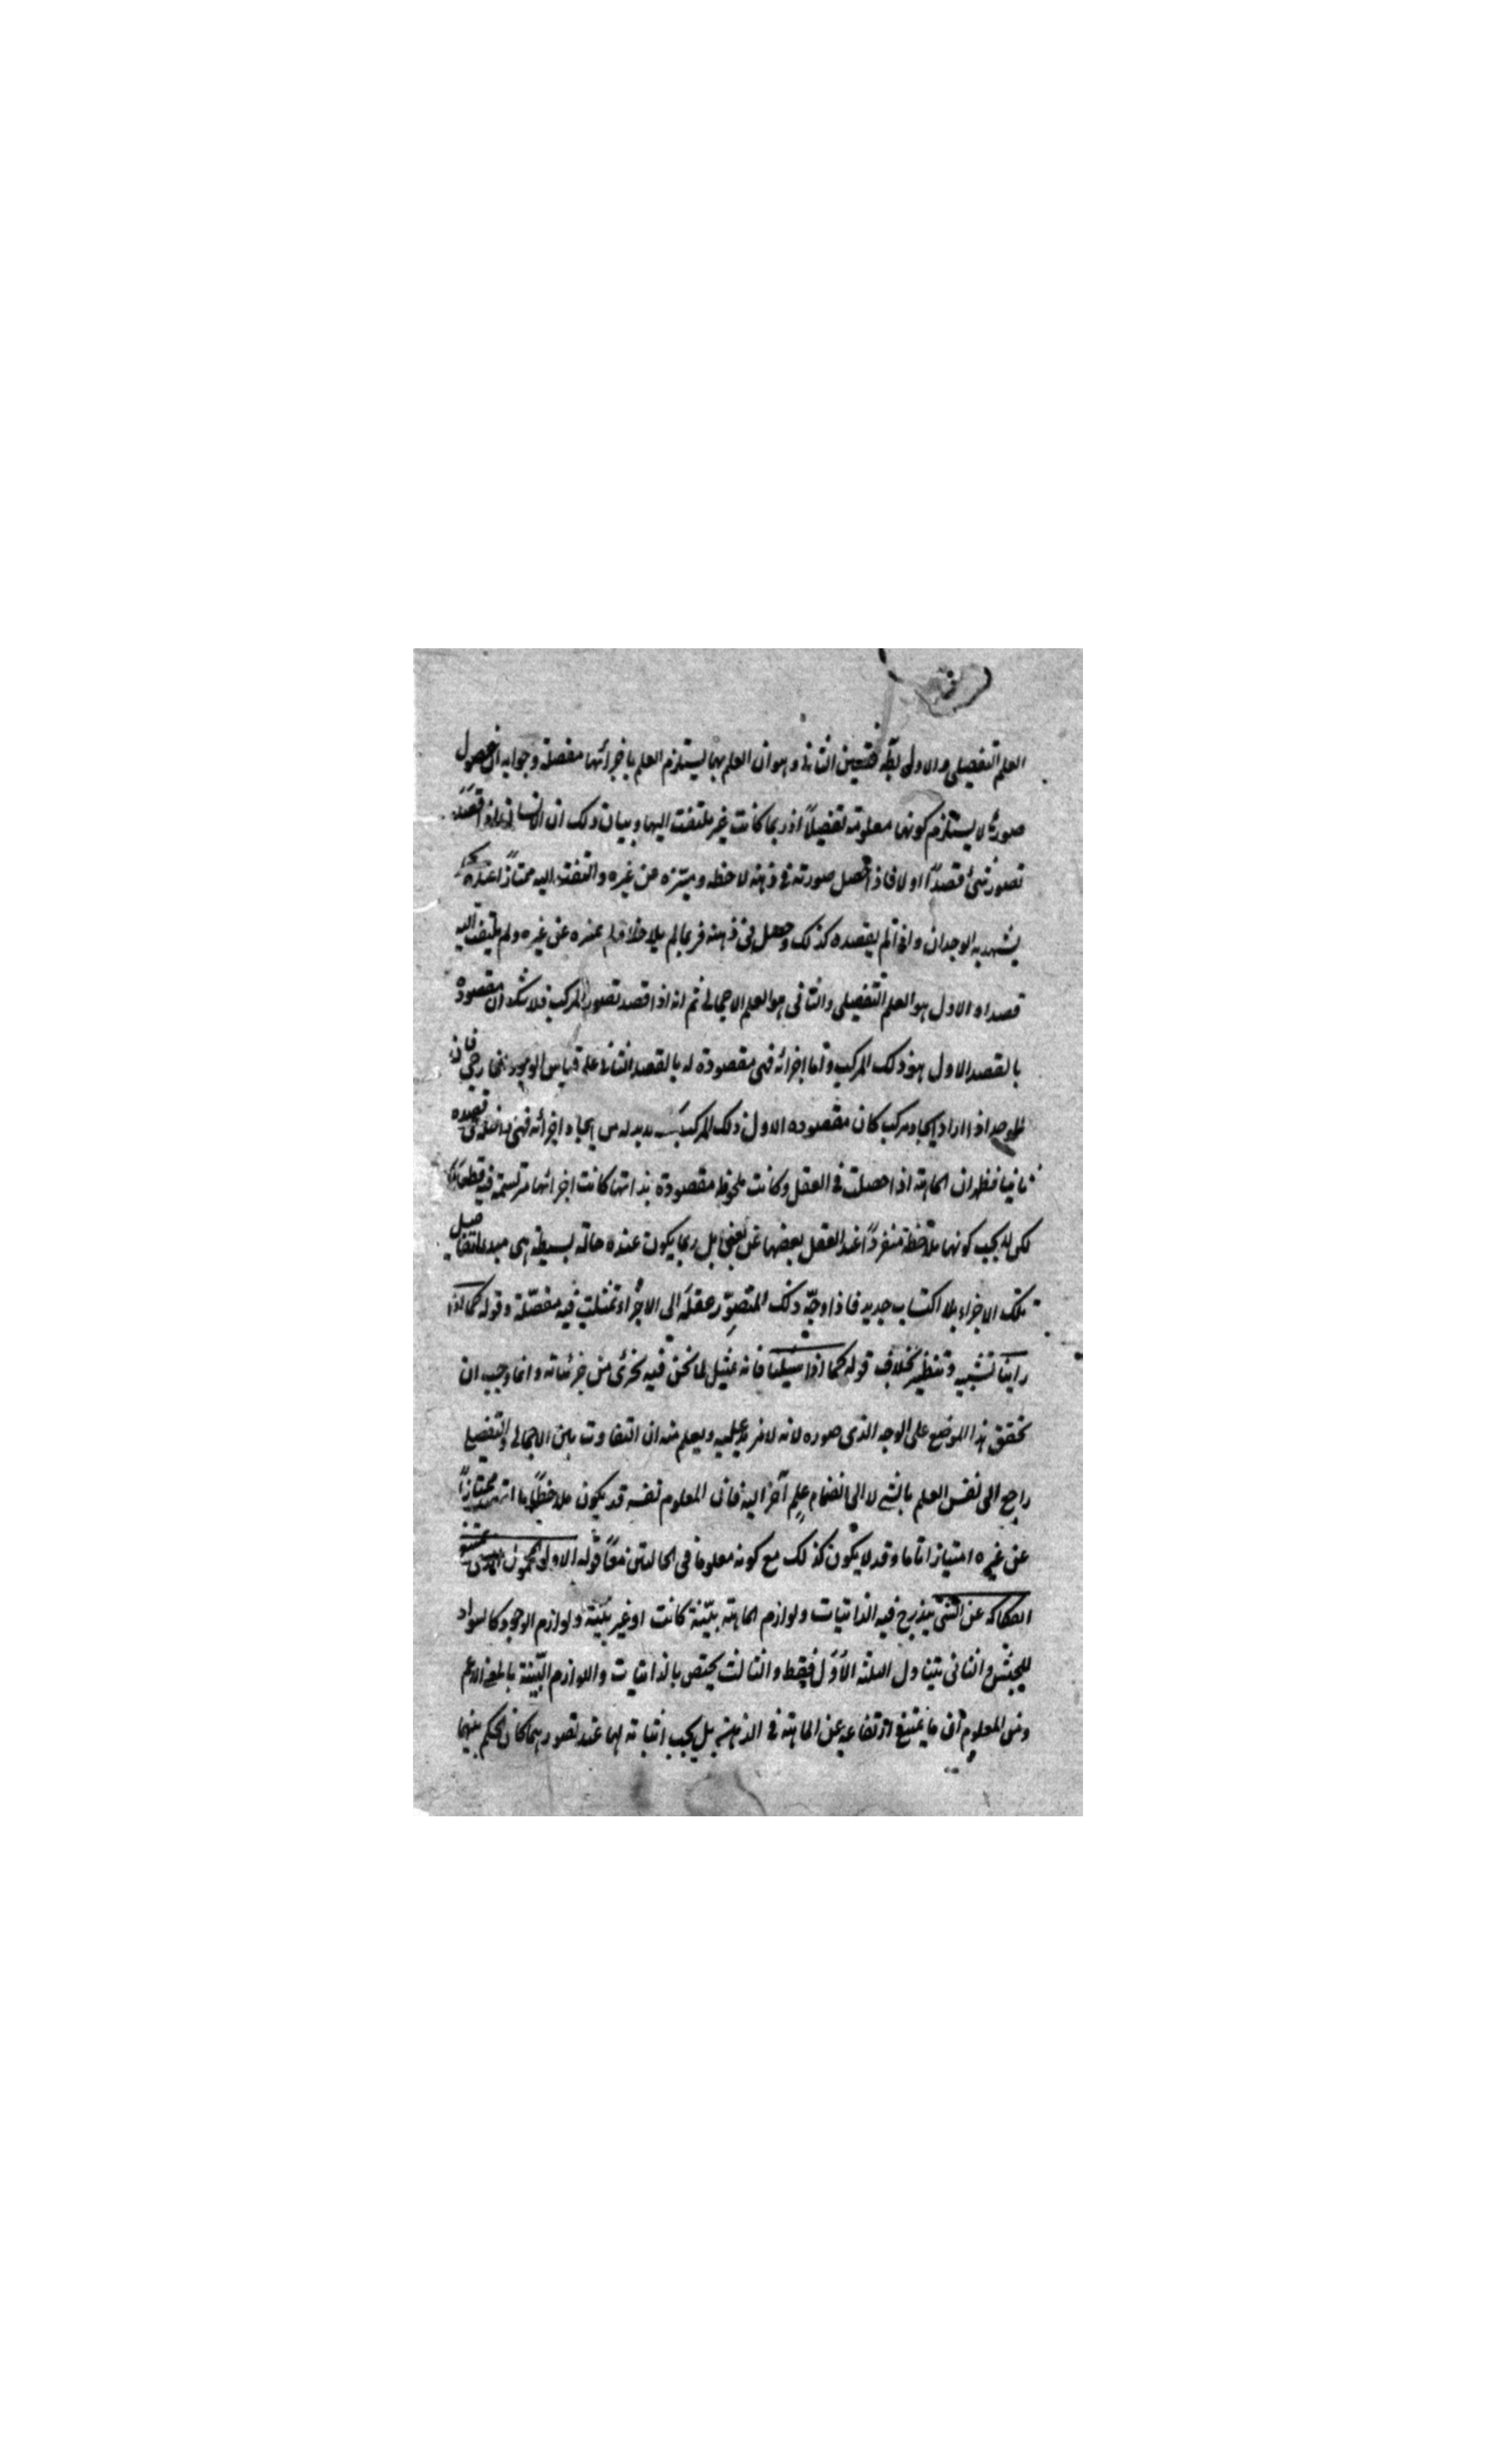 العلم التفصيلى والاولى بط فتعين الثانى وهو ان العلم بها يستلزم العلم باجزائها مفصلة وجوابه ان حصول
صورة لا يستلزم كونها معلومة تفصيلاً اذ ربما كانت غير ملتفت اليها وبيان ذلك ان الانسان اذا قصد
تصور شئ قصدًا اولا فاذا حصل صورته فى ذهنه لاحظه وميزه عن غيره والتفت اليه ممتازًا عنده
يشهد به الوجدان واذا لم يقصده كذلك وحصل فى ذهنه فربما لم يلاحظه ولم يميزه عن غيره ولم يلتفت اليه
قصدا والاول هو العلم التفصيلى والثانى هو العلم الاجمالى ثم انه اذا قصد تصور المركب فلا شك ان مقصوده
بالقصد الاول هو ذلك المركب واما اجزائه فهى مقصودة له بالقصد الثانى على قياس الوجود الخارجى فان
الموجد اذا اراد ايجاد مركب كان مقصوده الاول ذلك المركب لا بد له من ايجاد اجزائه فهى داخلة فى قصده
ثانيا فظهر ان الماهية اذا حصلت فى العقل وكانت ملحوظة مقصودة بذاتها كانت اجزائها مرتسمة فيه قطعا
لكن لا يجب كونها ملاحظة منفردًا عند العقل بعضها عن بعض بل ربما يكون عنده حالة بسيطة هى مبدء لتفاصيل
تلك الاجزاء بلا اكتساب جديد فاذا وجّه ذلك المتصوّر عقله الى الاجزاء تمثلت فيه مفصّلة وقوله كما اذا
راينا تشبيه وتنظير بخلاف قوله كما اذا سئلنا فانه تمثيل لما نحن فيه بجزئى من جزئياته وانما وجب ان
يحقق هذا الموضع على الوجه الذى صوره لانه لا مزيد عليه ويعلم منه ان التفاوت بين الاجمالى والتفصيلى
راجع الى نفس العلم بالشئ لا الى انضمام علم آخر اليه فان المعلوم نفسه قد يكون ملاحظًا بذاته ممتازًا
عن غيره امتيازا تاما وقد لا يكون كذلك مع كونه معلوما فى الحالتين معًا قوله الاولى المحمول الذى يمتنع
انفكاكه عن الشئ يندرج فيه الذاتيات ولوازم الماهية بيّنة كانت او غير بيّنة ولوازم الوجود كالسواد
للحبشى والثانى يتناول الثلثة الاُوَل فقط والثالث يختص بالذاتيات واللوازم البيّنة بالمعنى الاعم
ومن المعلوم ان ما يمتنع ارتفاعه عن الماهية فى الذهن بل يجب اثباته لها عند تصورهما كان الحكم بينهما